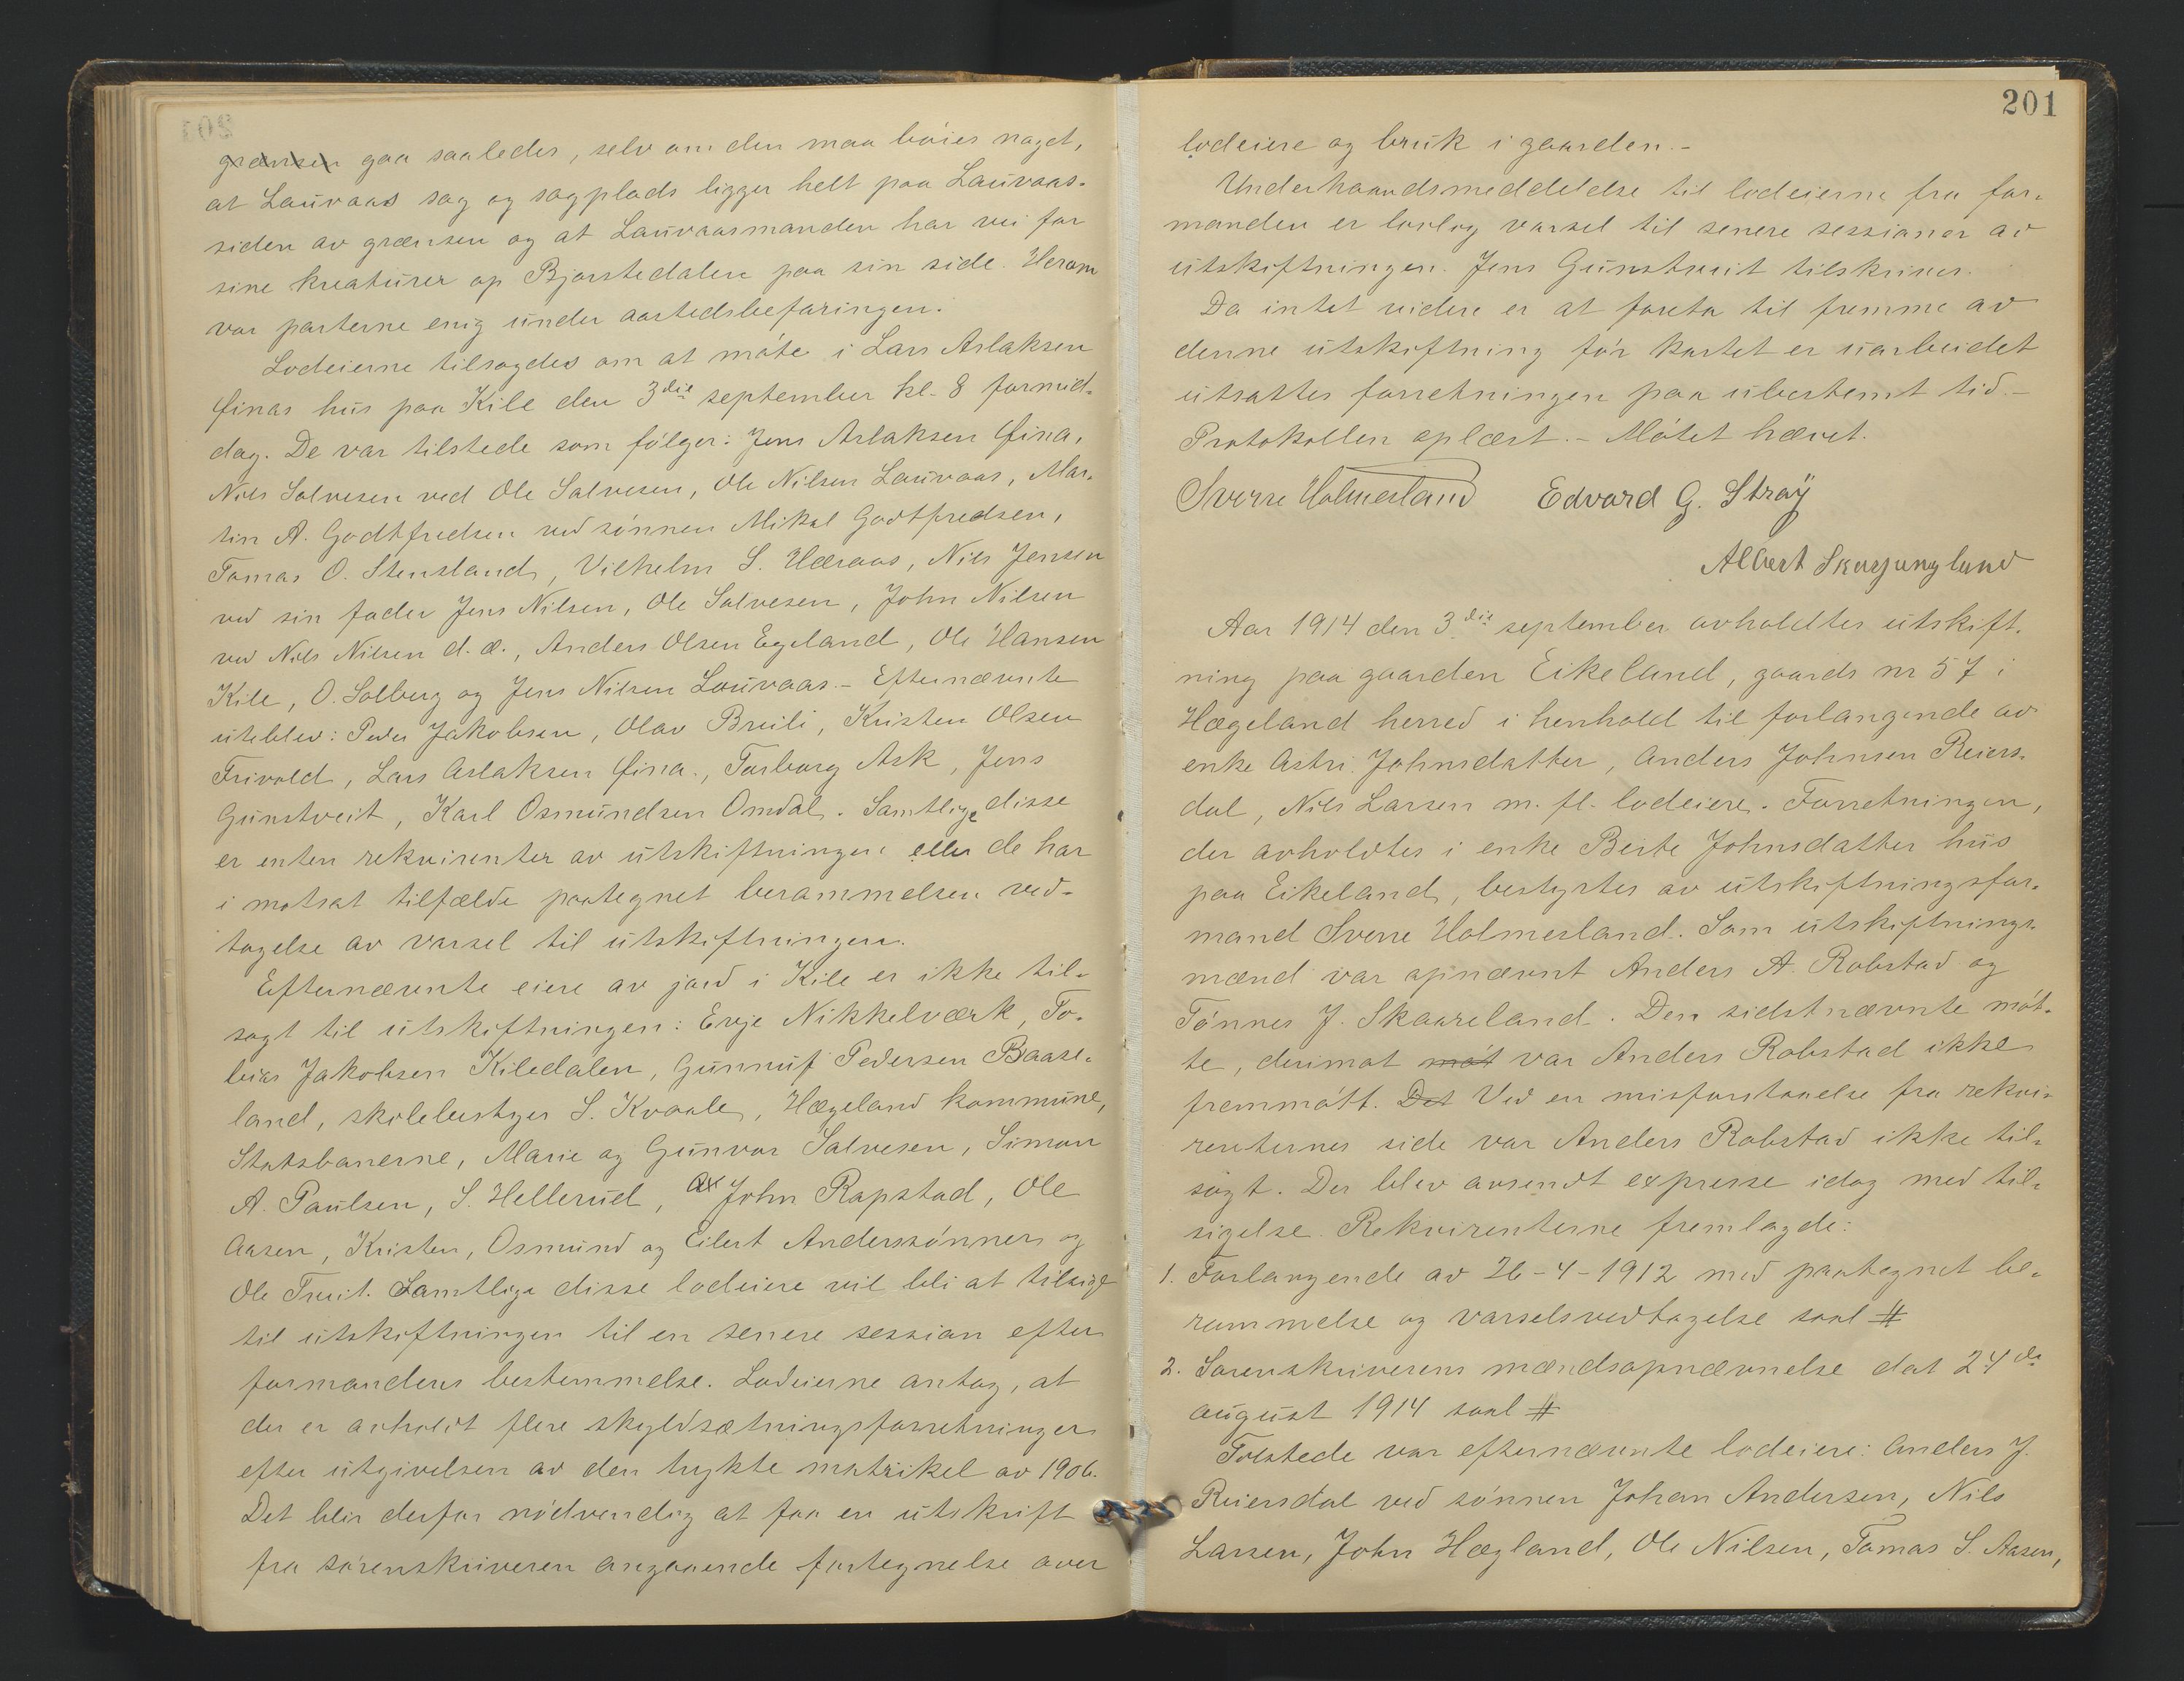 grænsen gaa saaledes, selv om den maa bøies noget,
at Lauvaas sag og sagplads ligger helt paa Lauvaas-
siden av grænsen og at Lauvaasmanden har vei for
sine kreaturer op Bjorstedalen paa sin side. Herom
var parterne enig under aastedsbefaringen.
Lodeierne tilsagdes om at møte i Lars Aslaksen
Finas hus paa Kile den 3die september kl. 8 formid-
dag. De var tilstede som følger: Jens Aslaksen Fina,
Nils Salvesen ved Ole Salvesen, Ole Nilsen Lauvaas, Mar-
tin A. Godtfredsen ved sønnen Mikal Godtfredsen,
Tomas O. Stensland, Vilhelm S. Hæraas, Nils Jensen
ved sin fader Jens Nilsen, Ole Salvesen, John Nilsen
ved Nils Nilsen d. æ., Anders Olsen Egeland, Ole Hansen
Kile, O. Solberg og Jens Nilsen Lauvaas.- Efternævnte
uteblev: Peder Jakobsen, Olav Breili, Kristen Olsen
Frivold, Lars Aslaksen Fina., Torborg Ask, Jens
Gunstveit, Karl Osmundsen Omdal. Samtlige disse
er enten rekvirenter av utskiftningen eller de har
i motsat tilfælde paategnet berammelsen ved-
tagelse av varsel til utskiftningen.
Efternævnte eiere av jord i Kile er ikke til-
sagt til utskiftningen: Evje Nikkelværk, To-
bias Jakobsen Kiledalen, Gunnuf Pedersen Baase-
land, skolebestyrer S. Kvaale, Hægeland kommune,
Statsbanerne, Marie og Gunvor Salvesen, Simon
A. Paulsen, S. Hellerud, John Rapstad, Ole
Aasen, Kristen, Osmund og Eilert Anderssønner og
Ole Tveit. Samtlige disse lodeiere vil bli at tilsige
til utskiftningen til en senere session efter
formandens bestemmelse. Lodeierne antog, at
der er avholdt flere skyldsætningsforretninger
efter utgivelsen av den trykte matrikel av 1906.
Det blir derfor nødvendig at faa en utskrift
fra sorenskriveren angaaende fortegnelse over
201
lodeiere og bruk i gaarden.-
Underhaandsmeddelelse til lodeierne fra for-
manden er lovlig varsel til senere sessioner av
utskiftningen. Jens Gunstveit tilskrives.
Da intet videre er at foreta til fremme av
denne utskiftning før kartet er uarbeidet
utsattes forretningen paa ubestemt tid.-
Protokollen oplæst.- Møtet hævet.
Sverre Holmesland Edvard G. Strøy
Albert Skarpengland
Aar 1914 den 3.die september avholdtes utskift-
ning paa gaarden Eikeland, gaards nr 57 i
Hægeland herred i henhold til forlangende av
enke Astri Johnsdatter, Anders Johnsen Reiers-
dal, Nils Larsen m. fl. lodeiere. Forretningen,
der avholdtes i enke Berte Johnsdatter hus
paa Eikeland, bestyrtes av utskiftningsfor-
mand Sverre Holmesland. Som utskiftnings-
mænd var opnævnt Anders A. Robstad og
Tønnes J. Skaareland. Den sidstnævnte møt-
te, derimot møt var Anders Robstad ikke
fremmøtt. Det Ved en misforstaaelse fra rekvi-
renternes side var Anders Robstad ikke til-
sagt. Der blev avsendt expresse idag med til-
sigelse. Rekvirenterne fremlagde:
1. Forlangende av 26-4-1912 med paategnet be-
rammelse og varselsvedtagelse saal #
2. Sorenskriverens mændsopnævnelse dat 24de
august 1914 saal #
Tilstede var efternævnte lodeiere: Anders J.
Reiersdal ved sønnen Johan Andersen, Nils
Larsen, John Hægland, Ole Nilsen, Tomas S. Aasen,